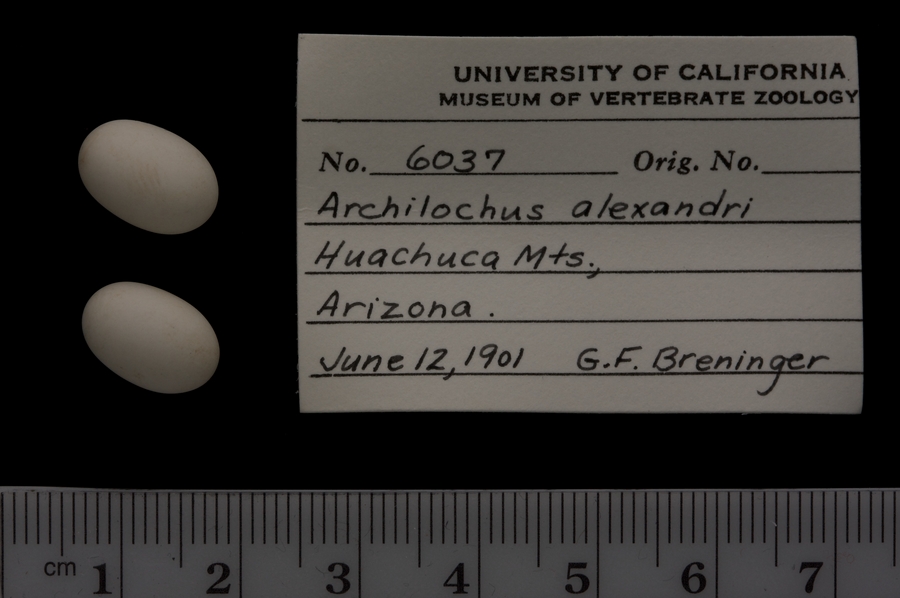 UNIVERSITY OF CALIFORNIA
MUSEUM OF VERTEBRATE ZOOLOGY
No. 6037 Orig. No.
Archilochus alexandri
Huachuca Mts.,
Arizona.
June 12, 1901 G.F. Breninger
cm 1 2 3 4 5 6 7